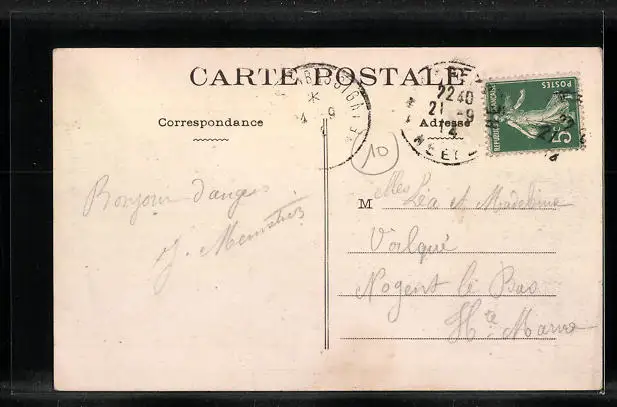 CARTE POSTALE
Correspondance
Adresse
22 40
21 -9
14
POSTES
REPUBLIQUE FRANÇAISE
5c
10
Bonjour d'anges
J.
M elles Léa et Madeleine
Voilqué
Nogent le Bas
Hte Marne